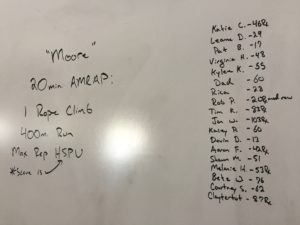 "Moore"
20 min AMRAP:
1 Rope Climb
400m Run
Max Rep HSPU
*Score is
Katie C. - 46Rx
Leanne D. - 29
Pat B. - 17
Virginia H. - 48
Kylee K. - 55
Dad - 60
Rica - 28
Rob P. - 20 and row
Tim K. - 
Jon W. - 103Rx
Kacey B. - 60
Devin D. - 13
Aaron F. - 42Rx
Shawn M. - 51
Melanie H. - 53Rx
Bete W. - 76
Courtney S. - 62
- 87Rx